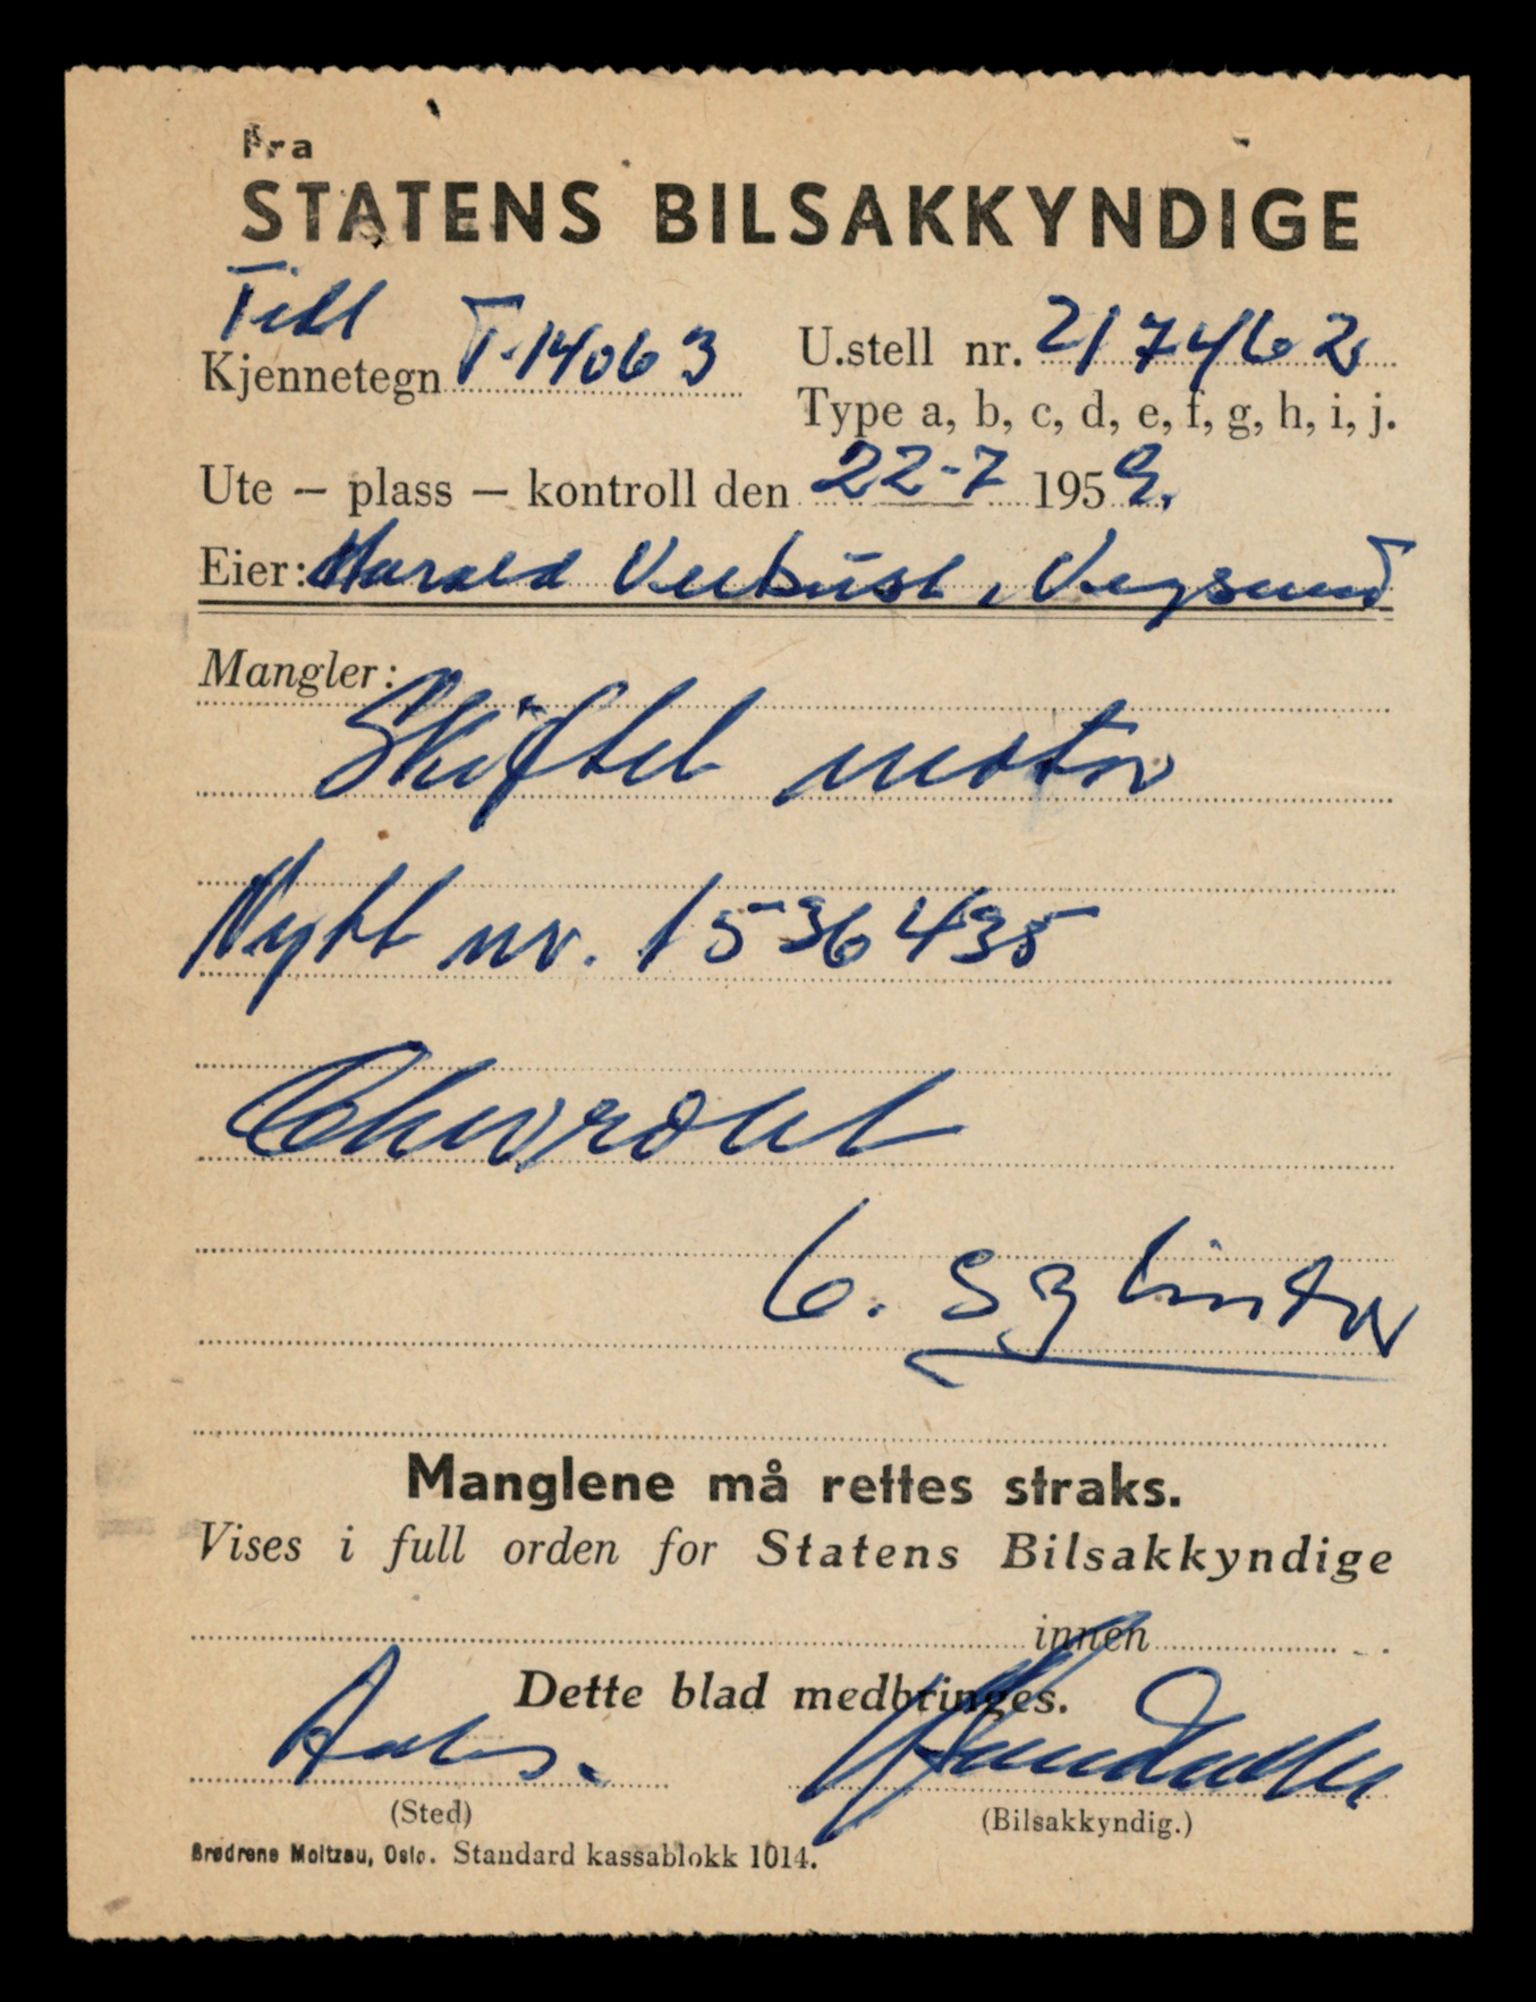 Fra
STATENS BILSAKKYNDIGE
Till
Kjennetegn T-14063
U.stell nr. 217462
Type a, b, c, d, e, f, g, h, i, j.
Ute – plass – kontroll den 22-7 1959.
Eier: Harald , Vegsund
Mangler:
Skiftet motor
Nytt nr. 1536435
Chevrolet
6. sylinder
Manglene må rettes straks.
Vises i full orden for Statens Bilsakkyndige
innen
Dette blad medbringes.
Aales.
(Sted)
(Bilsakkyndig.)
Brødrene Moltzau, Oslo. Standard kassablokk 1014.